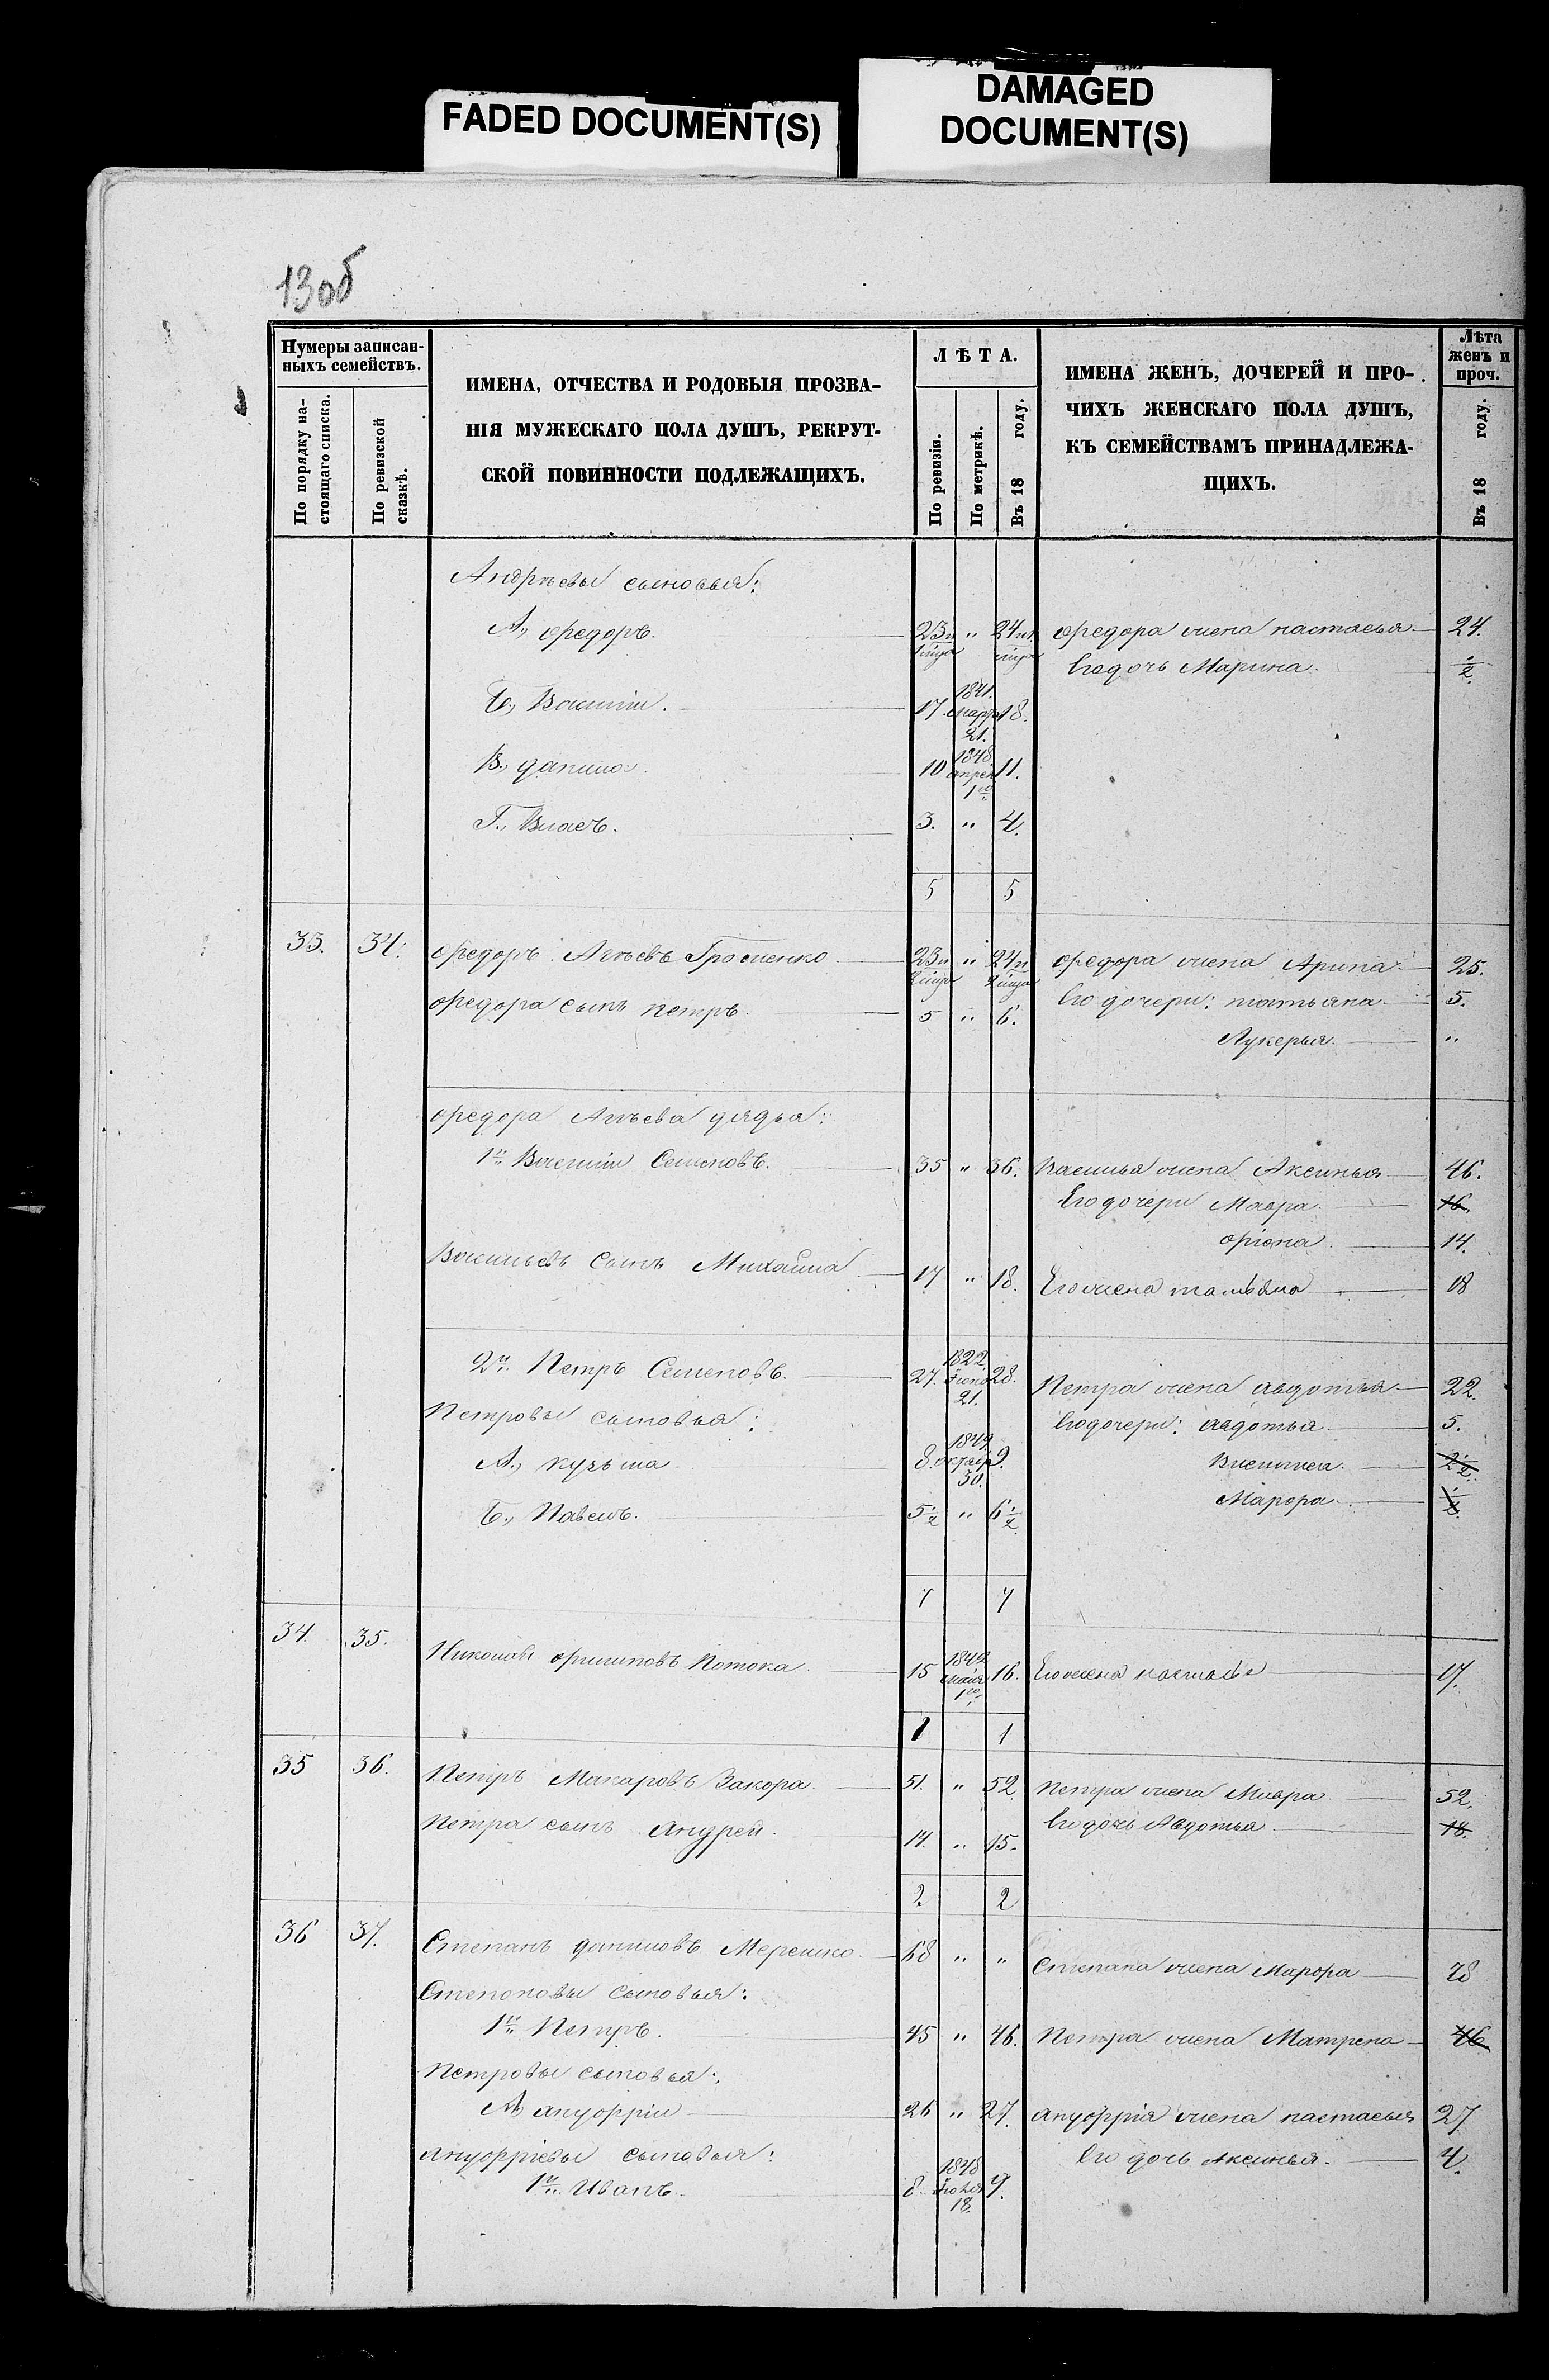 FADED DOCUMENT(S)
DAMAGED
DOCUMENT(S)
13об
Нумеры записан-
ныхъ семействъ.
По порядку на-
стоящаго списка.
По ревизской
сказкѣ.
ИМЕНА, ОТЧЕСТВА И РОДОВЫЯ ПРОЗВА-
НІЯ МУЖЕСКАГО ПОЛА ДУШЪ, РЕКРУТ-
СКОЙ ПОВИННОСТИ ПОДЛЕЖАЩИХЪ.
ЛѢТА.
По ревизіи.
По метрикѣ.
Въ 18 году.
ИМЕНА ЖЕНЪ, ДОЧЕРЕЙ И ПРО-
ЧИХЪ ЖЕНСКАГО ПОЛА ДУШЪ,
КЪ СЕМЕЙСТВАМЪ ПРИНАДЛЕЖА-
ЩИХЪ.
Лѣта
женъ и
проч.
Въ 18 году.
Андрѣевы сыновья:
А., Ѳедоръ. 23 „ 24 Ѳедора жена настасья 24.
Его дочь Марина. 1/2
Б., Василіи. 17. 1841. марта 21. 18.
В., данило. 10 1848 апреля 1го 11.
Г., Власъ. 3. „ 4.
5 5
33. 34. Ѳедоръ Ѳедора жена Арина 25.
23 „ 24
Ѳедора сынъ петръ. 5 „ 6. Его дочери: татьяна 5.
Лукерья. „
Ѳедора дядья:
1й Василіи Семеновъ. 35 „ 36. Василья жена Аксинья 46.
Его дочери Мавра. 16.
14.
Васильевъ сынъ Михайла 17 „ 18. Его жена татьяна 18
2й Петръ Семеновъ. 27. 1822. 21. 28. Петра жена авдотья 22.
Петровы сыновья: Его дочери: авдотья 5.
А., кузьма 8. 1849. октября 30. 9. 2 1/2
Б., Павелъ. 5 1/2 „ 6 1/2 Марѳа. 1/2
7 7
34. 35. Николай Потока. 15 1842 мая 1го 16. Его жена настасья 17.
1 1
35 36. Петръ Макаровъ Закора. 51. „ 52 Петра жена Мавра 52.
Петра сынъ Андрей. 14. „ 15. Его дочь Авдотья 18.
2. 2
36 37. Степанъ даниловъ Мережко. 68 „ „ Степана жена Марѳа
Степановы сыновья:
1й Петръ. 45 „ 46. Петра жена Матрена 46
Петровы сыновья:
А, ануѳріи 26 „ 27. ануѳрія жена настасья 27
ануѳріевы сыновья: Его дочь Аксинья. 4.
1й Иванъ. 8. 1848 18. 9.